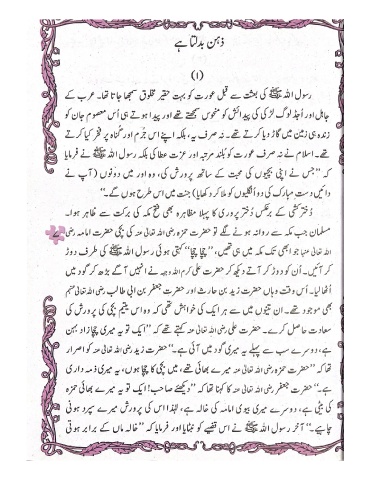 ذہن بدلتا ہے
(۱)
رسول اللہ ﷺ کی بعثت سے قبل عورت کو بہت حقیر مخلوق سمجھا جاتا تھا۔ عرب کے
جاہل اور اُجڈ لوگ لڑکی کی پیدائش کو منحوس سمجھتے تھے اور پیدا ہوتے ہی اُس معصوم جان کو
زندہ ہی زمین میں گاڑ دیا کرتے تھے۔ نہ صرف یہ، بلکہ اپنے اس جُرم اور گناہ پر فخر کیا کرتے
تھے۔ اسلام نے نہ صرف عورت کو بلند مرتبہ اور عزت عطا کی بلکہ رسول اللہ ﷺ نے فرمایا
کہ ”جس نے اپنی بچیوں کی محبت کے ساتھ پرورش کی، وہ اور میں دونوں (آپ نے
دائیں دستِ مبارک کی دو انگلیوں کو ملا کر دکھایا) جنت میں اس طرح ہوں گے۔“
دُختر کشی کے برعکس دُختر پروری کا پہلا مظاہرہ بھی فتح مکہ کی برکت سے ظاہر ہوا۔
مسلمان جب مکہ سے روانہ ہونے لگے تو حضرت حمزہ رضی اللہ تعالیٰ عنہ کی بچی حضرت امامہ رضی
اللہ تعالیٰ عنہا جو ابھی تک مکہ میں ہی تھیں، ”چچا چچا“ کہتی ہوئی رسول اللہ ﷺ کی طرف دوڑ
کر آئیں۔ اُن کو دوڑ کر آتے دیکھ کر حضرت علی کرم اللہ وجہہ نے انہیں آگے بڑھ کر گود میں
اُٹھا لیا۔ اُس وقت وہاں حضرت زید بن حارث اور حضرت جعفر بن ابی طالب رضی اللہ تعالیٰ عنہم
بھی موجود تھے۔ ان تینوں میں سے ہر ایک کی خواہش تھی کہ وہ اس یتیم بچی کی پرورش کی
سعادت حاصل کرے۔ حضرت علی رضی اللہ تعالیٰ عنہ کہتے تھے کہ ”ایک تو یہ میری چچا زاد بہن
ہے، دوسرے سب سے پہلے یہ میری گود میں آئی ہے۔“ حضرت زید رضی اللہ تعالیٰ عنہ کو اصرار
تھا کہ ”حضرت حمزہ رضی اللہ تعالیٰ عنہ میرے بھائی تھے، میں بچی کا چچا ہوں، یہ میری ذمہ داری
ہے۔“ حضرت جعفر رضی اللہ تعالیٰ عنہ کا کہنا تھا کہ ”دیکھئے صاحب! ایک تو یہ میرے بھائی حمزہ
کی بیٹی ہے، دوسرے میری بیوی امامہ کی خالہ ہے، لہٰذا اس کی پرورش میرے سپرد ہونی
چاہیے۔“ آخر رسول اللہ ﷺ نے اس قضیے کو نمٹایا اور فرمایا کہ ”خالہ ماں کے برابر ہوتی